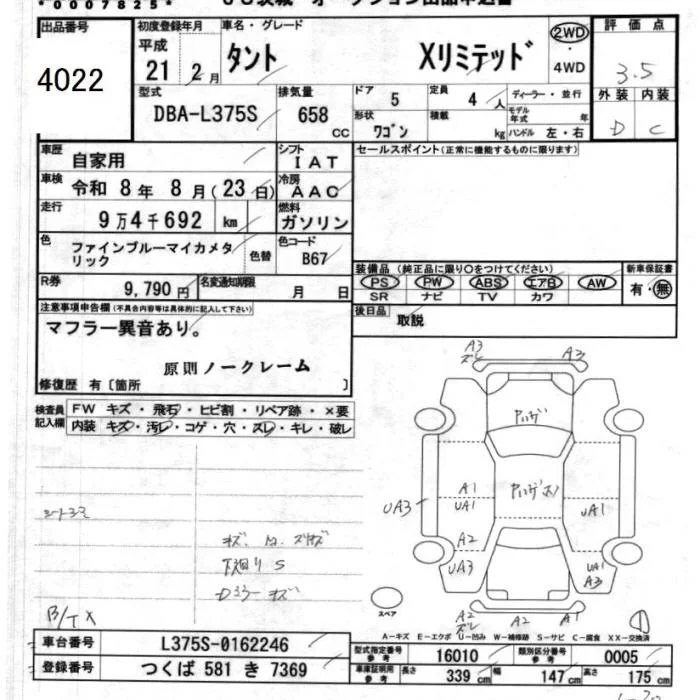 *0007825*
出品番号 初度登録年月 車名・グレード 2WD 評価点
4022 平成 21年 2月 タント Xリミテッド ・4WD 3.5
型式 DBA-L375S 排気量 658 cc ドア 5 定員 4人 ディーラー・並行 外装 内装
形状 ワゴン 積載 kg モデル年式 年 ハンドル 左・右 D C
車歴 自家用 シフト IAT セールスポイント(正常に機能するものに限ります)
車検 令和 8年 8月(23日) 冷房 AAC
走行 9万4千692 km 燃料 ガソリン
色 ファインブルーマイカメタリック 色替 色コード B67
装備品 (純正品に限り○をつけてください) 新車保証書
R券 9,790円 名変通知期限 月 日 PS PW ABS エアB AW 有・無
SR ナビ TV カワ
注意事項申告欄(不具合内容等は具体的に記入して下さい) 後日品 取説
マフラー異音あり。
原則ノークレーム
修復歴 有〔箇所 〕
検査員記入欄 FW キズ・飛石・ヒビ割・リペア跡・×要
内装 キズ・汚レ・コゲ・穴・スレ・キレ・破レ
A3
A3
A1
UA1
UA3
UA1
A2
UA3
UA1
A3
下廻り S
スペア
A2
A2
A1
B/T X
A-キズ E-エクボ U-凹み W-補修跡 S-サビ C-腐食 XX-交換済
車台番号 L375S-0162246 型式指定番号 参考 16010 類別区分番号 参考 0005
登録番号 つくば 581 き 7369 車庫証明用 参考 長さ 339 cm 幅 147 cm 高さ 175 cm